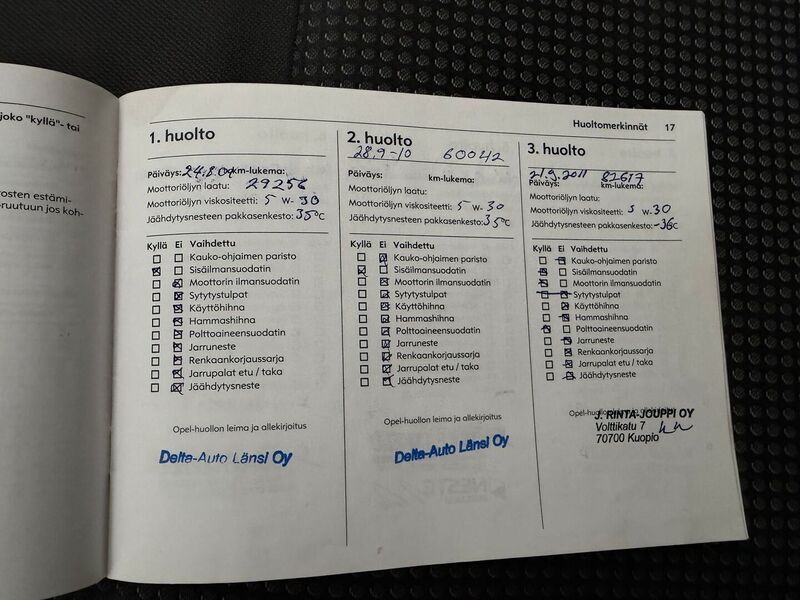 joko "kyllä"- tai
rosten estämi-
ruutuun jos koh-
Huoltomerkinnät 17
1. huolto
Päiväys: 24.8.09 km-lukema:
Moottoriöljyn laatu: 29256
Moottoriöljyn viskositeetti: 5 W- 30
Jäähdytysnesteen pakkasenkesto: 35°C
Kyllä Ei Vaihdettu
Kauko-ohjaimen paristo
Sisäilmansuodatin
Moottorin ilmansuodatin
Sytytystulpat
Käyttöhihna
Hammashihna
Polttoaineensuodatin
Jarruneste
Renkaankorjaussarja
Jarrupalat etu / taka
Jäähdytysneste
Opel-huollon leima ja allekirjoitus
Delta-Auto Länsi Oy
2. huolto
28.9-10 60042
Päiväys: km-lukema:
Moottoriöljyn laatu:
Moottoriöljyn viskositeetti: 5 W-30
Jäähdytysnesteen pakkasenkesto: 35°C
Kyllä Ei Vaihdettu
Kauko-ohjaimen paristo
Sisäilmansuodatin
Moottorin ilmansuodatin
Sytytystulpat
Käyttöhihna
Hammashihna
Polttoaineensuodatin
Jarruneste
Renkaankorjaussarja
Jarrupalat etu / taka
Jäähdytysneste
Opel-huollon leima ja allekirjoitus
Delta-Auto Länsi Oy
3. huolto
21.9.2011 82617
Päiväys: km-lukema:
Moottoriöljyn laatu:
Moottoriöljyn viskositeetti: 5 W-30
Jäähdytysnesteen pakkasenkesto: -36C
Kyllä Ei Vaihdettu
Kauko-ohjaimen paristo
Sisäilmansuodatin
Moottorin ilmansuodatin
Sytytystulpat
Käyttöhihna
Hammashihna
Polttoaineensuodatin
Jarruneste
Renkaankorjaussarja
Jarrupalat etu / taka
Jäähdytysneste
J. RINTA-JOUPPI OY
Volttikatu 7
70700 Kuopio